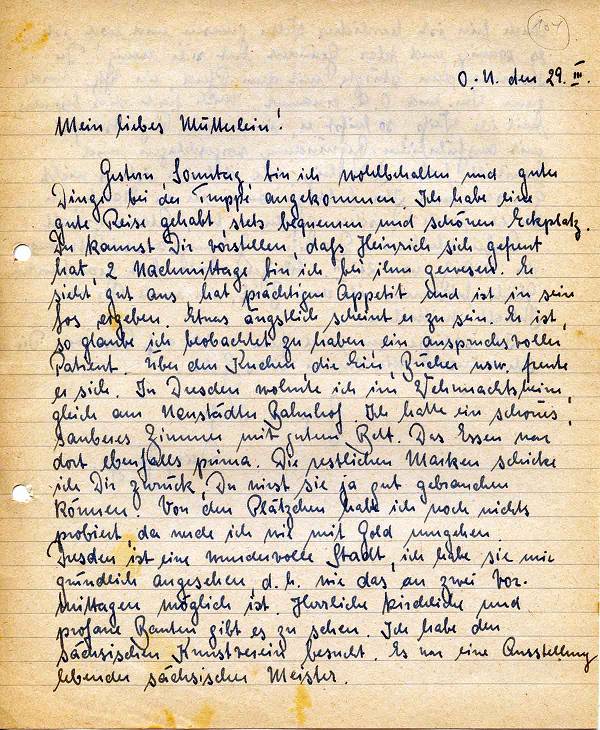 104
O.U. den 29. III.
Mein liebes Mütterlein!
Gestern, Sonntag, bin ich wohlbehalten und guter
Dinge bei der Truppe angekommen. Ich habe eine
gute Reise gehabt, stets bequemen und schönen Eckplatz.
Du kannst Dir vorstellen, daß Heinrich sich gefreut
hat, 2 Nachmittage bin ich bei ihm gewesen. Er
sieht gut aus, hat prächtigen Appetit und ist in sein
Los ergeben. Etwas ängstlich scheint er zu sein. Er ist,
so glaube ich beobachtet zu haben ein anspruchsvoller
Patient. Über den Kuchen, die Eier, Bücher usw. freute
er sich. In Dresden wohnte ich im Wehrmachtsheim,
gleich am Neustädter Bahnhof. Ich hatte ein schönes,
sauberes Zimmer mit gutem Bett. Das Essen war
dort ebenfalls prima. Die restlichen Marken schicke
ich Dir zurück, Du wirst sie ja gut gebrauchen
können. Von den Plätzchen habe ich noch nichts
probiert, da werde ich wie mit Gold umgehen.
Dresden ist eine wundervolle Stadt, ich habe sie mir
gründlich angesehen, d. h. wie das an zwei Vor-
mittagen möglich ist. Herrliche kirchliche und
profane Bauten gibt es zu sehen. Ich habe den
sächsischen Kunstverein besucht. Es war eine Ausstellung
lebender sächsischer Meister.